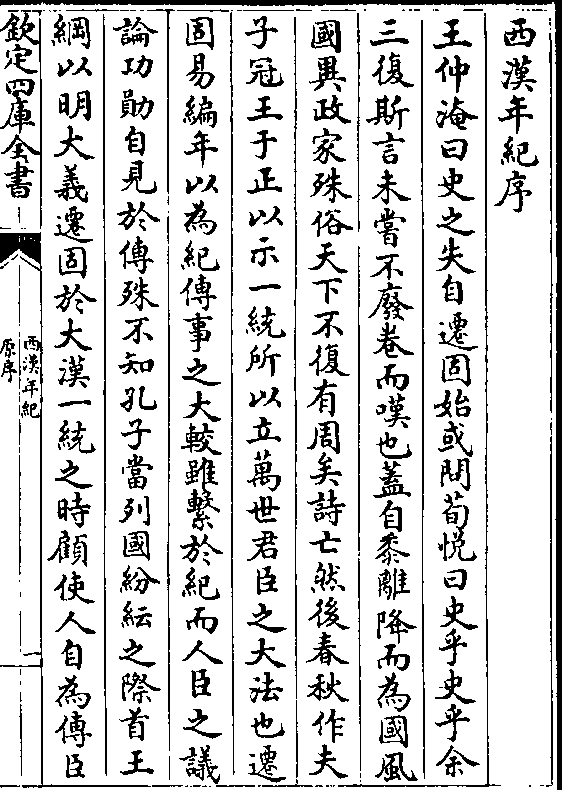 西漢年紀序
王仲淹曰史之失自遷固始或問荀悅曰史乎史乎余
三復斯言未嘗不廢卷而嘆也蓋自黍離降而為國風
國異政家殊俗天下不復有周矣詩亡然後春秋作夫
子冠王于正以示一統所以立萬世君臣之大法也遷
固易編年以為紀傳事之大較雖繫於紀而人臣之議
論功勛自見於傳殊不知孔子當列國紛紜之際首王
綱以明大義遷固於大漢一統之時顧使人自為傳臣
欽定四庫全書
西漢年紀
原序
一